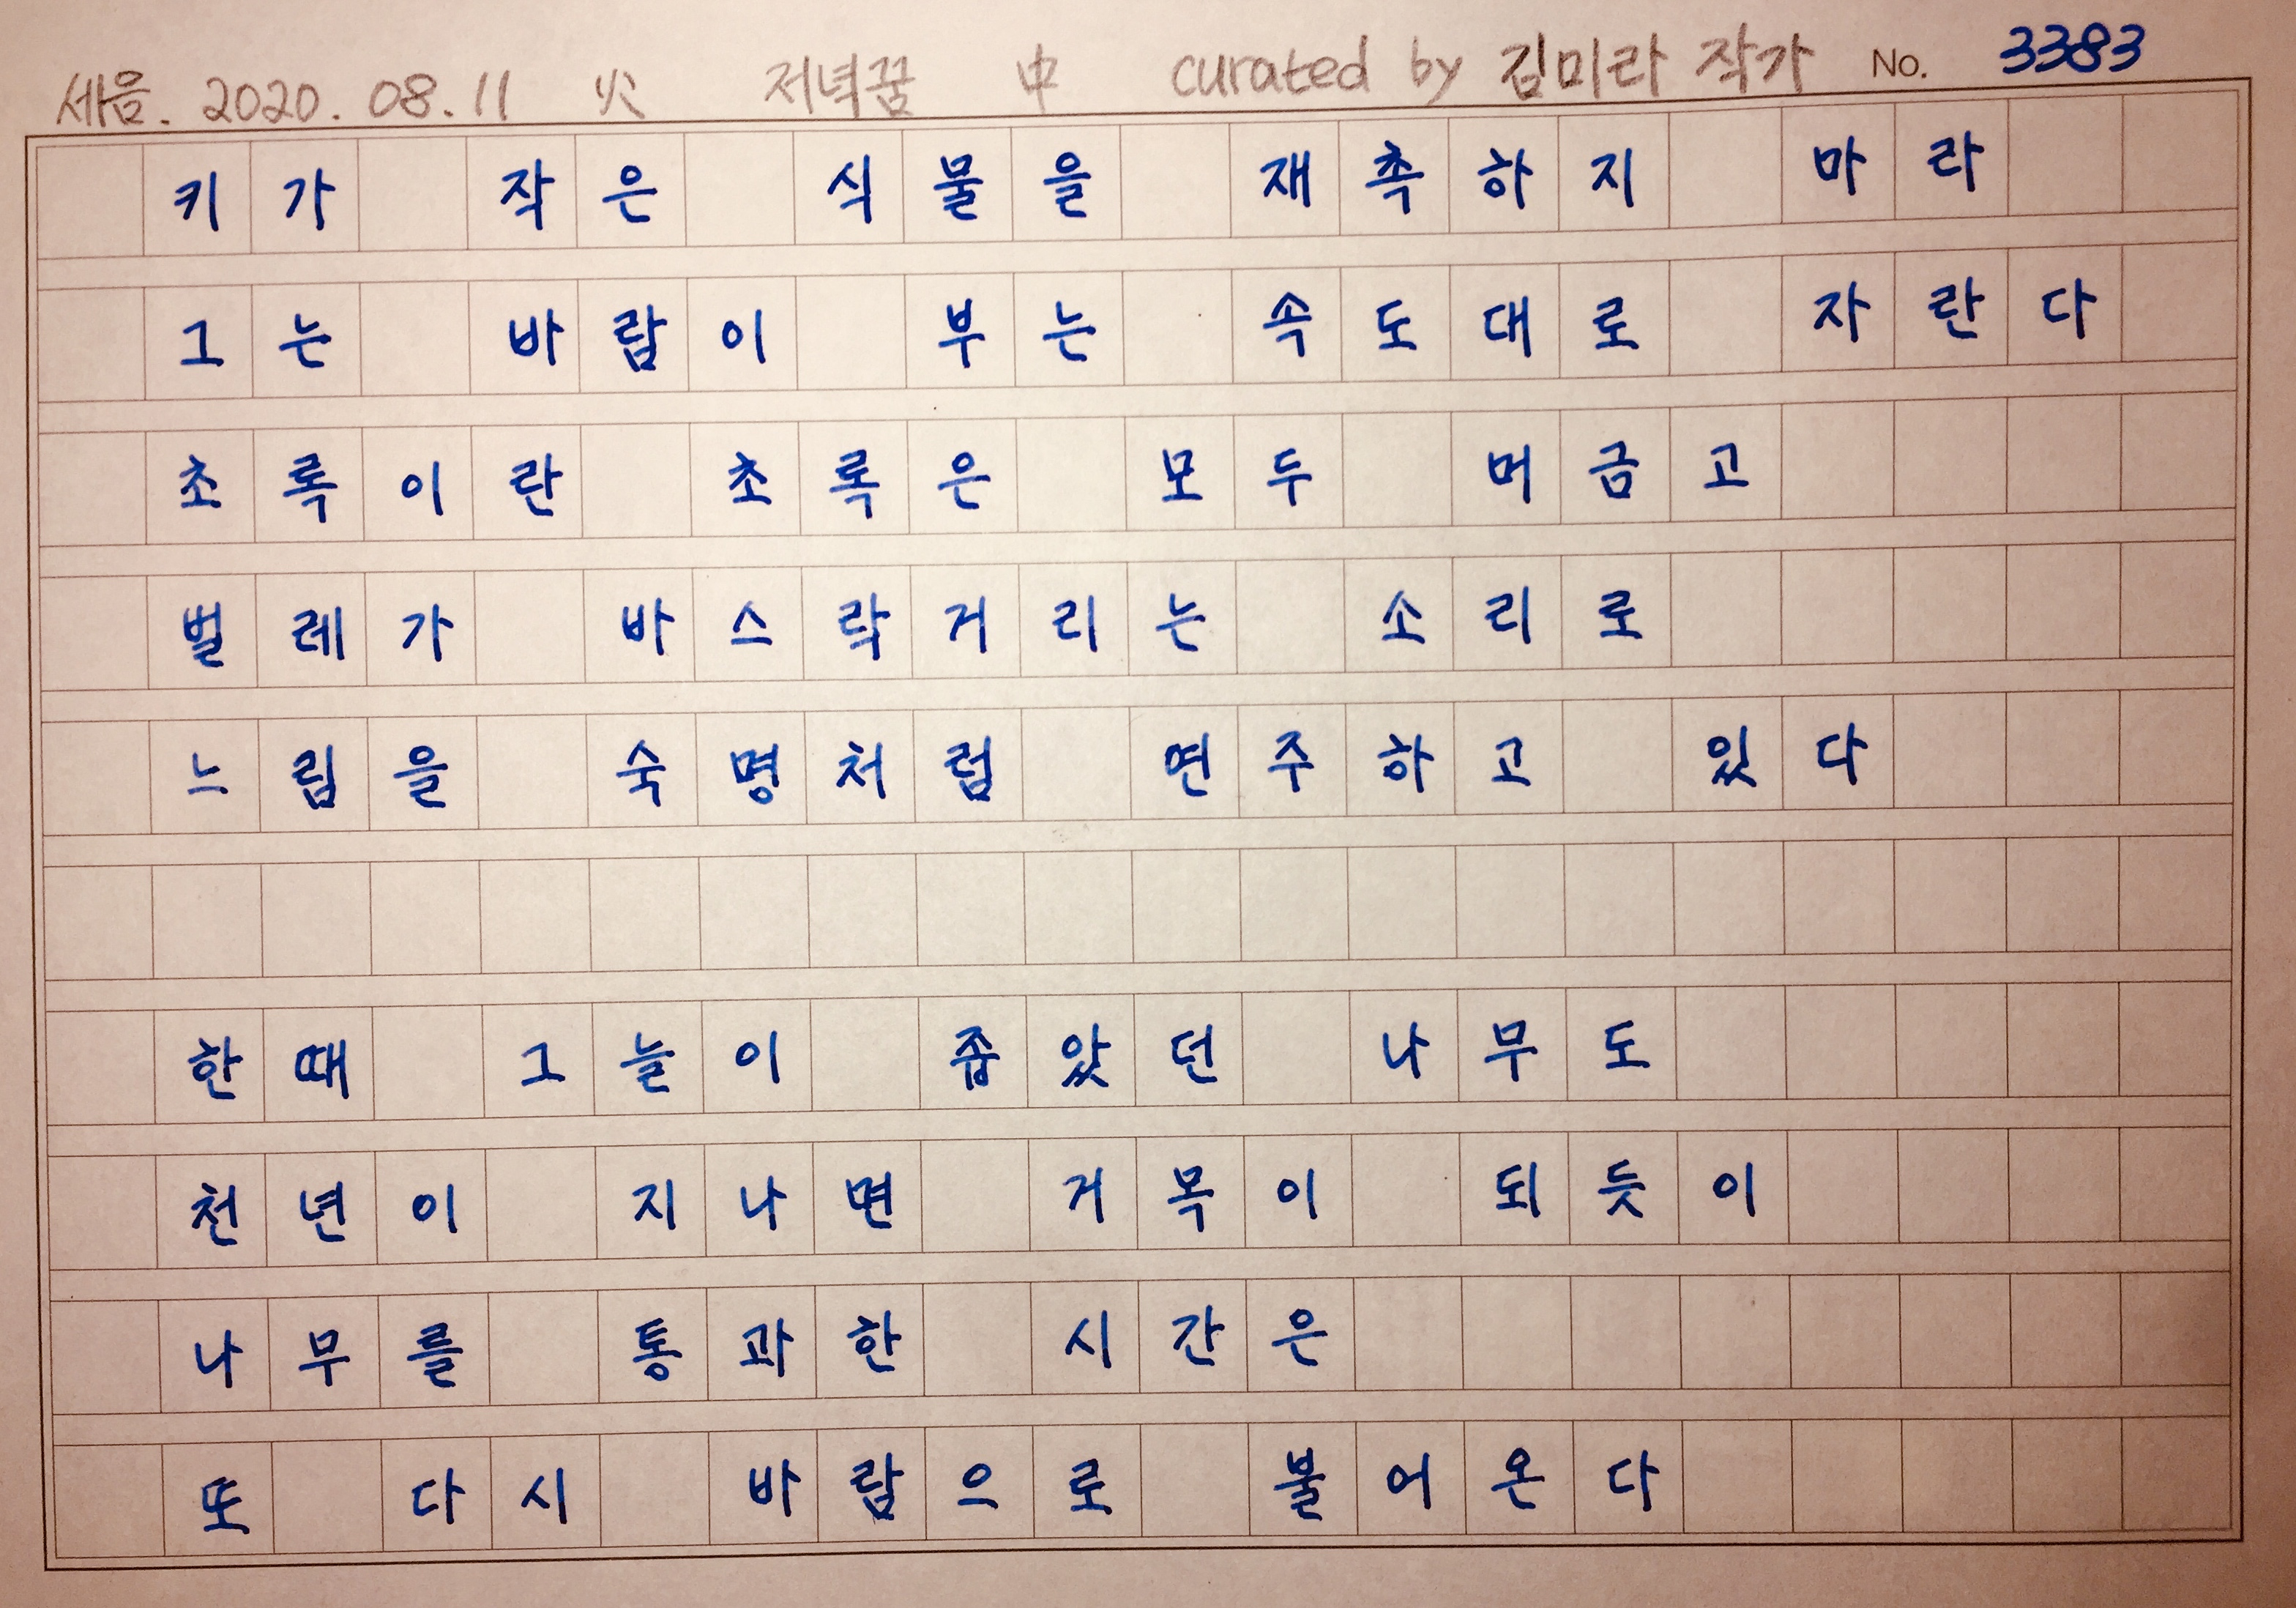 세음. 2020. 08. 11 火 저녁꿈 中 curated by 김미라 작가 No. 3383
키가 작은 식물을 재촉하지 마라
그는 바람이 부는 속도대로 자란다
초록이란 초록은 모두 머금고
벌레가 바스락거리는 소리로
느림을 숙명처럼 연주하고 있다
한때 그늘이 좁았던 나무도
천년이 지나면 거목이 되듯이
나무를 통과한 시간은
또 다시 바람으로 불어온다